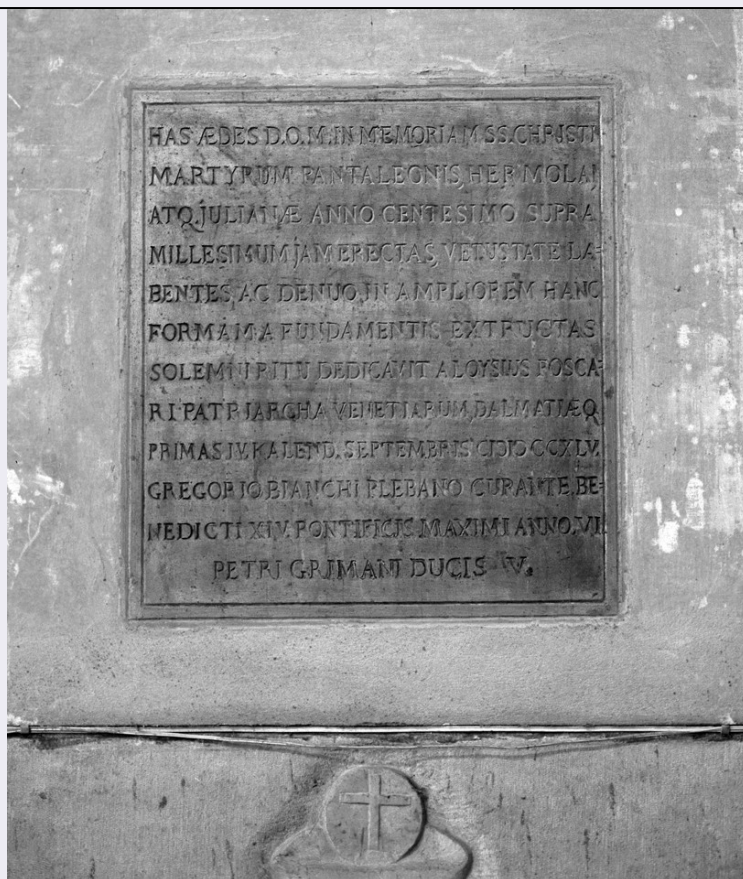 HAS ÆDES D.O.M. IN MEMORIAM SS. CHRISTI
MARTYRUM PANTALEONIS, HERMOLAI
ATQ. JULIANÆ ANNO CENTESIMO SUPRA
MILLESIMUM JAM ERECTAS, VETUSTATE LA=
BENTES, AC DENUO, IN AMPLIOREM HANC
FORMAM A FUNDAMENTIS EXTRUCTAS
SOLEMNI RITU DEDICAVIT ALOYSIUS FOSCA=
RI PATRIARCHA VENETIARUM, DALMATIÆQ.
PRIMAS IV. KALEND. SEPTEMBRIS CIƆIƆCCXLV.
GREGORIO BIANCHI PLEBANO CURANTE. BE=
NEDICTI XIV. PONTIFICIS MAXIMI ANNO. VI.
PETRI GRIMANI DUCIS V.